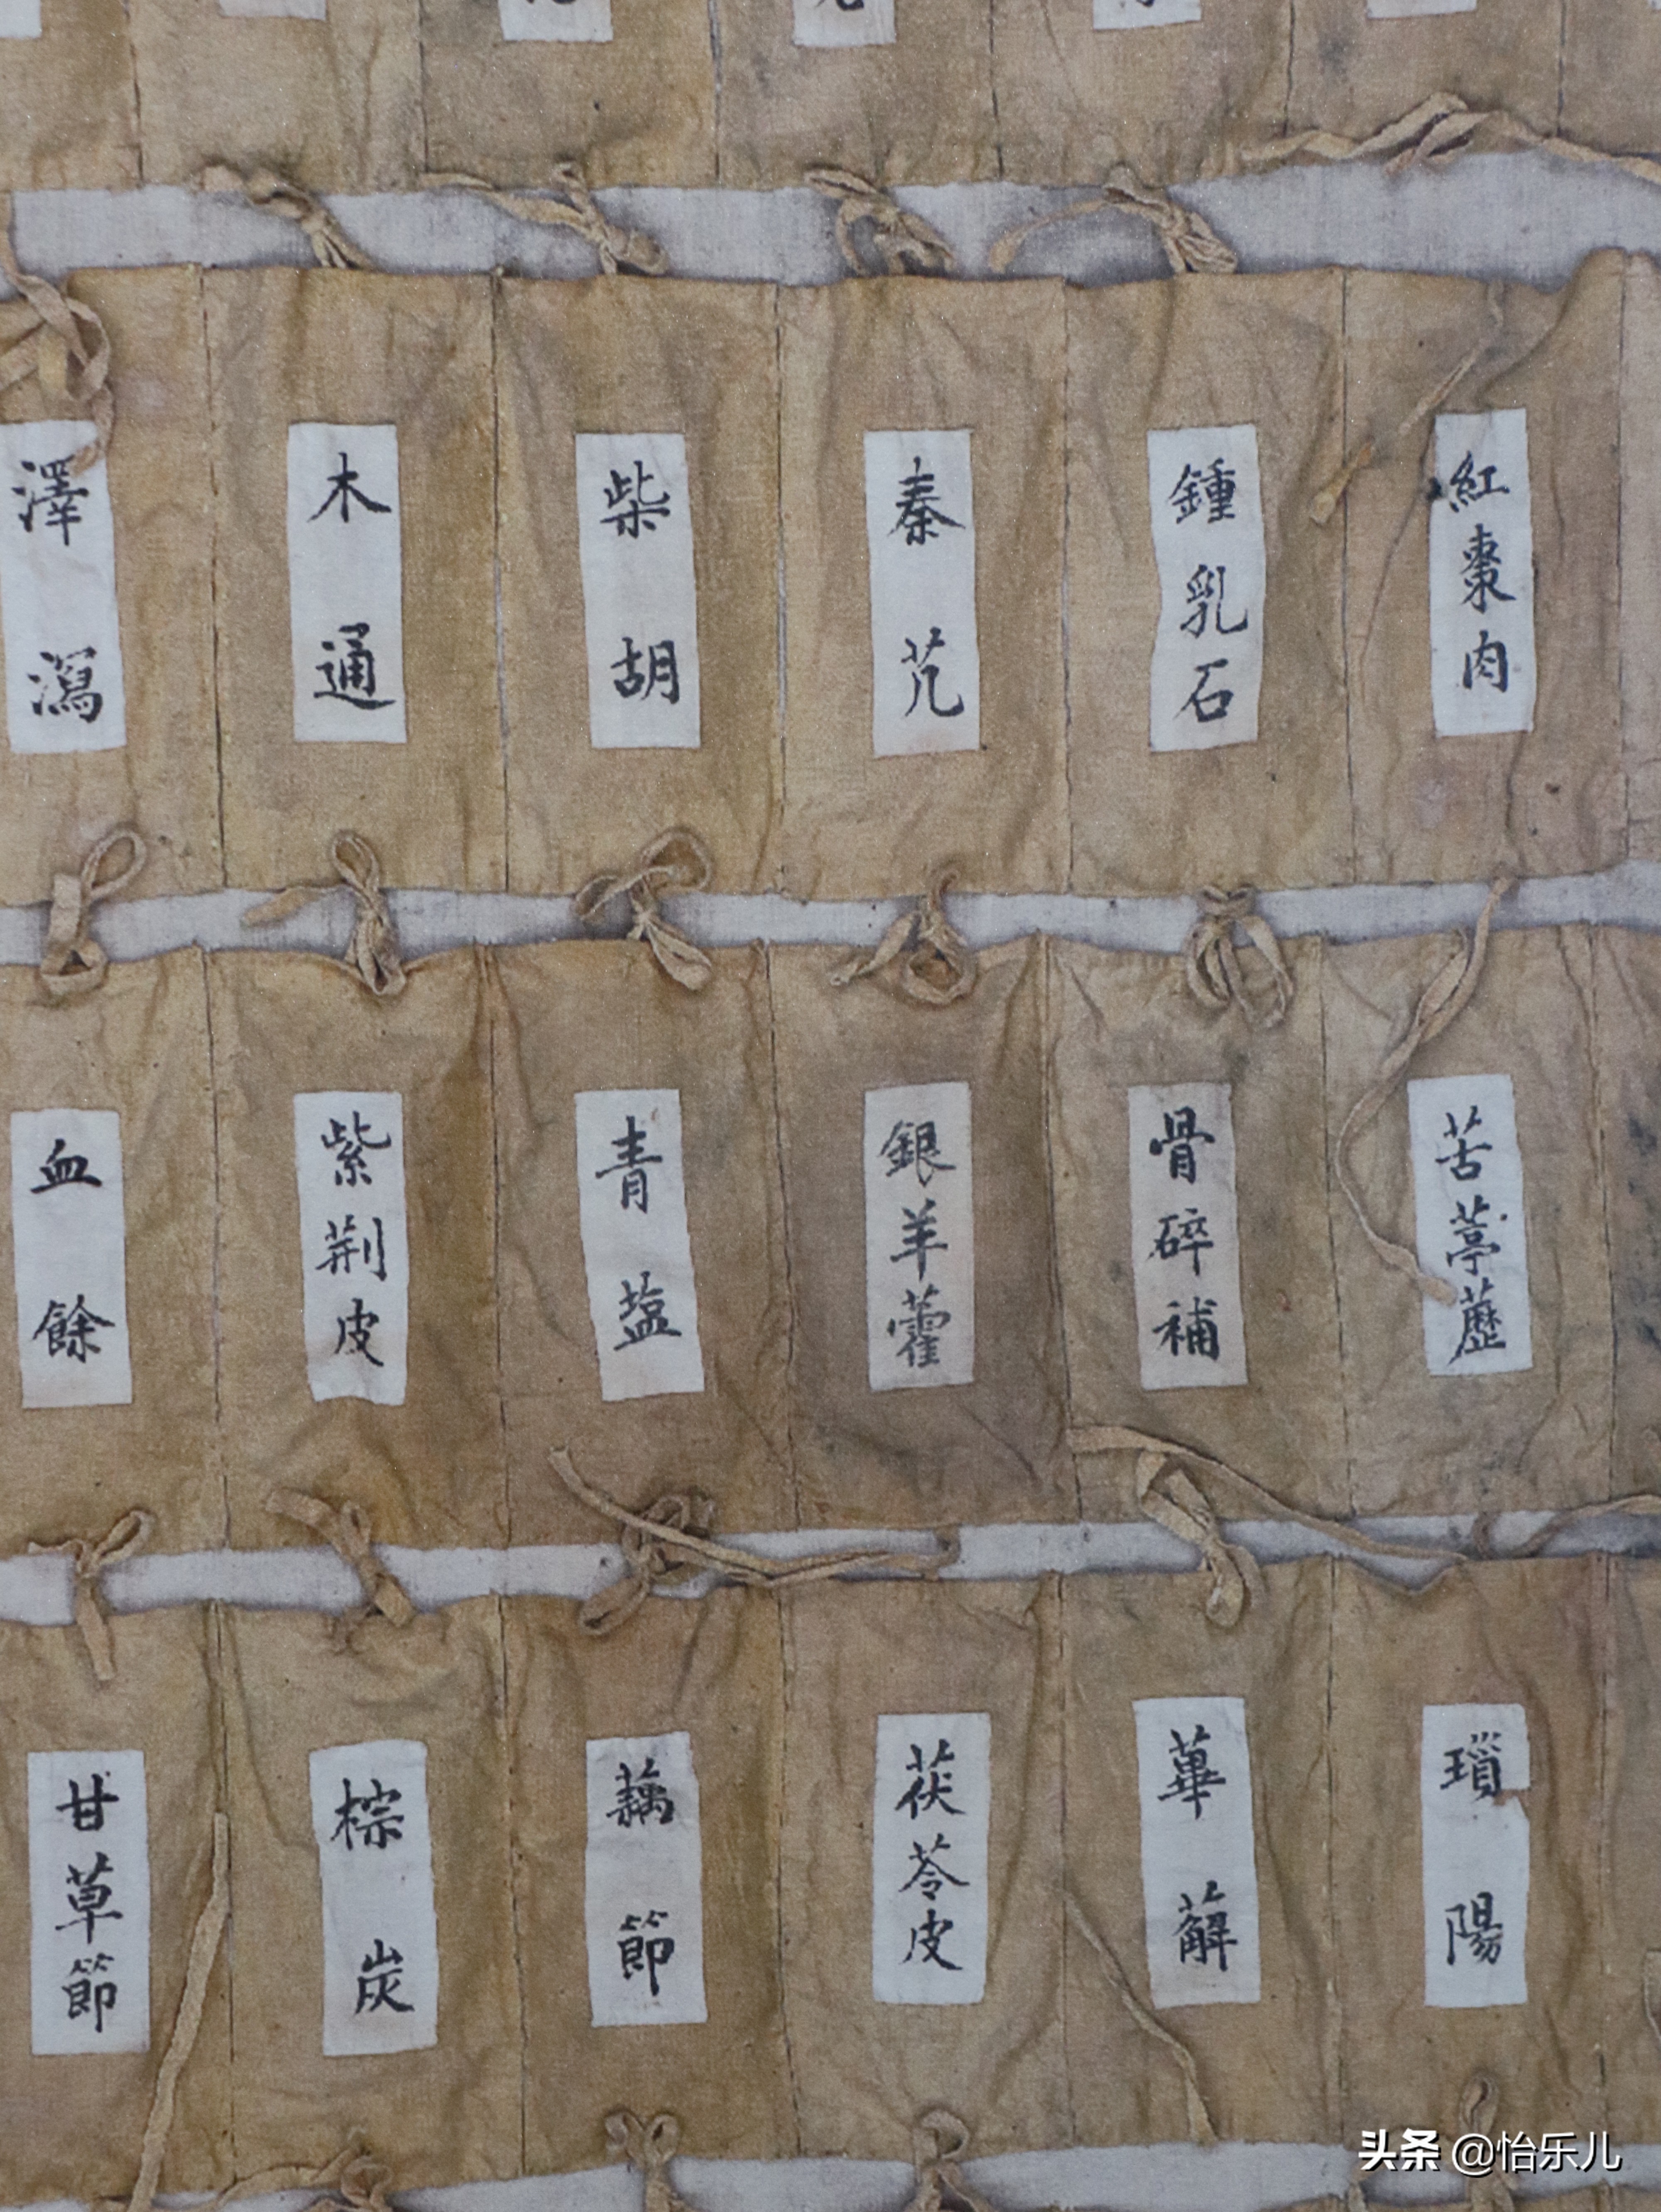 澤瀉
木通
柴胡
秦艽
鍾乳石
紅棗肉
血餘
紫荆皮
青塩
銀羊藿
骨碎補
苦葶藶
甘草節
棕炭
藕節
茯苓皮
萆薢
瑣陽
头条 @怡乐儿